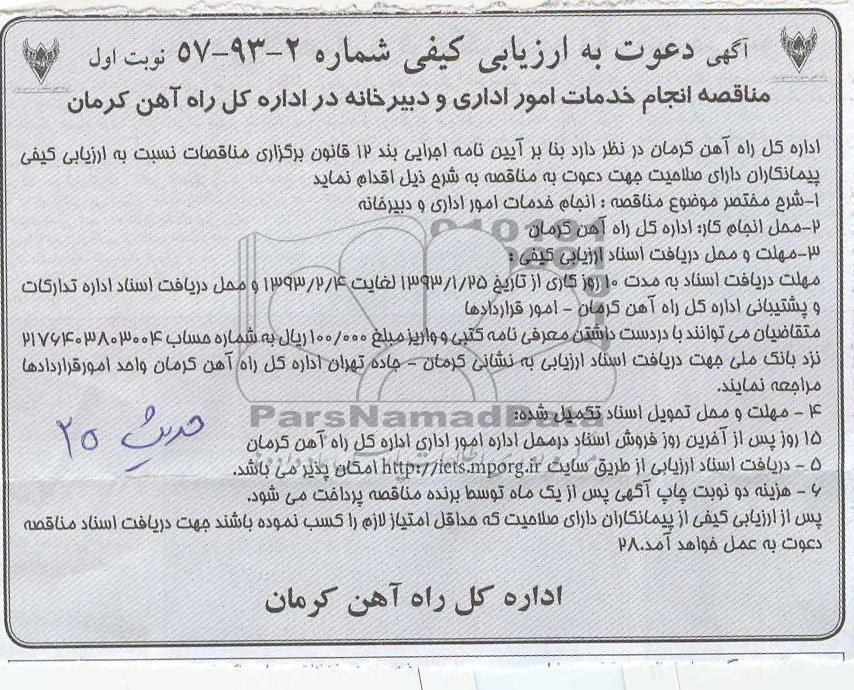 آگهی دعوت به ارزیابی کیفی شماره ۲-۹۳-۵۷ نوبت اول
مناقصه انجام خدمات امور اداری و دبیرخانه در اداره کل راه آهن کرمان
اداره کل راه آهن کرمان در نظر دارد بنا بر آیین نامه اجرایی بند ۱۲ قانون برگزاری مناقصات نسبت به ارزیابی کیفی
پیمانکاران دارای صلاحیت جهت دعوت به مناقصه به شرح ذیل اقدام نماید
۱-شرح مختصر موضوع مناقصه : انجام خدمات امور اداری و دبیرخانه
۲-محل انجام کار: اداره کل راه آهن کرمان
۳-مهلت و محل دریافت اسناد ارزیابی کیفی :
مهلت دریافت اسناد به مدت ۱۰ روز کاری از تاریخ ۱۳۹۳/۱/۲۵ لغایت ۱۳۹۳/۲/۴ و محل دریافت اسناد اداره تدارکات
و پشتیبانی اداره کل راه آهن کرمان - امور قراردادها
متقاضیان می توانند با دردست داشتن معرفی نامه کتبی و واریز مبلغ ۱۰۰/۰۰۰ ریال به شماره حساب ۲۱۷۶۴۰۳۸۰۳۰۰۴
نزد بانک ملی جهت دریافت اسناد ارزیابی به نشانی کرمان - جاده تهران اداره کل راه آهن کرمان واحد امورقراردادها
مراجعه نمایند.
ParsNamadData
۴ - مهلت و محل تحویل اسناد تکمیل شده:
۱۵ روز پس از آخرین روز فروش اسناد درمحل اداره امور اداری اداره کل راه آهن کرمان
۵ - دریافت اسناد ارزیابی از طریق سایت http://iets.mporg.ir امکان پذیر می باشد.
۶ - هزینه دو نوبت چاپ آگهی پس از یک ماه توسط برنده مناقصه پرداخت می شود.
پس از ارزیابی کیفی از پیمانکاران دارای صلاحیت که حداقل امتیاز لازم را کسب نموده باشند جهت دریافت اسناد مناقصه
دعوت به عمل خواهد آمد.۲۸
اداره کل راه آهن کرمان
حدیث ۲۵